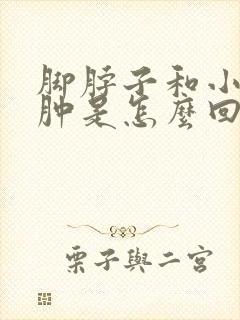 脚脖子和小
肿是怎麼回
栗子與二宮